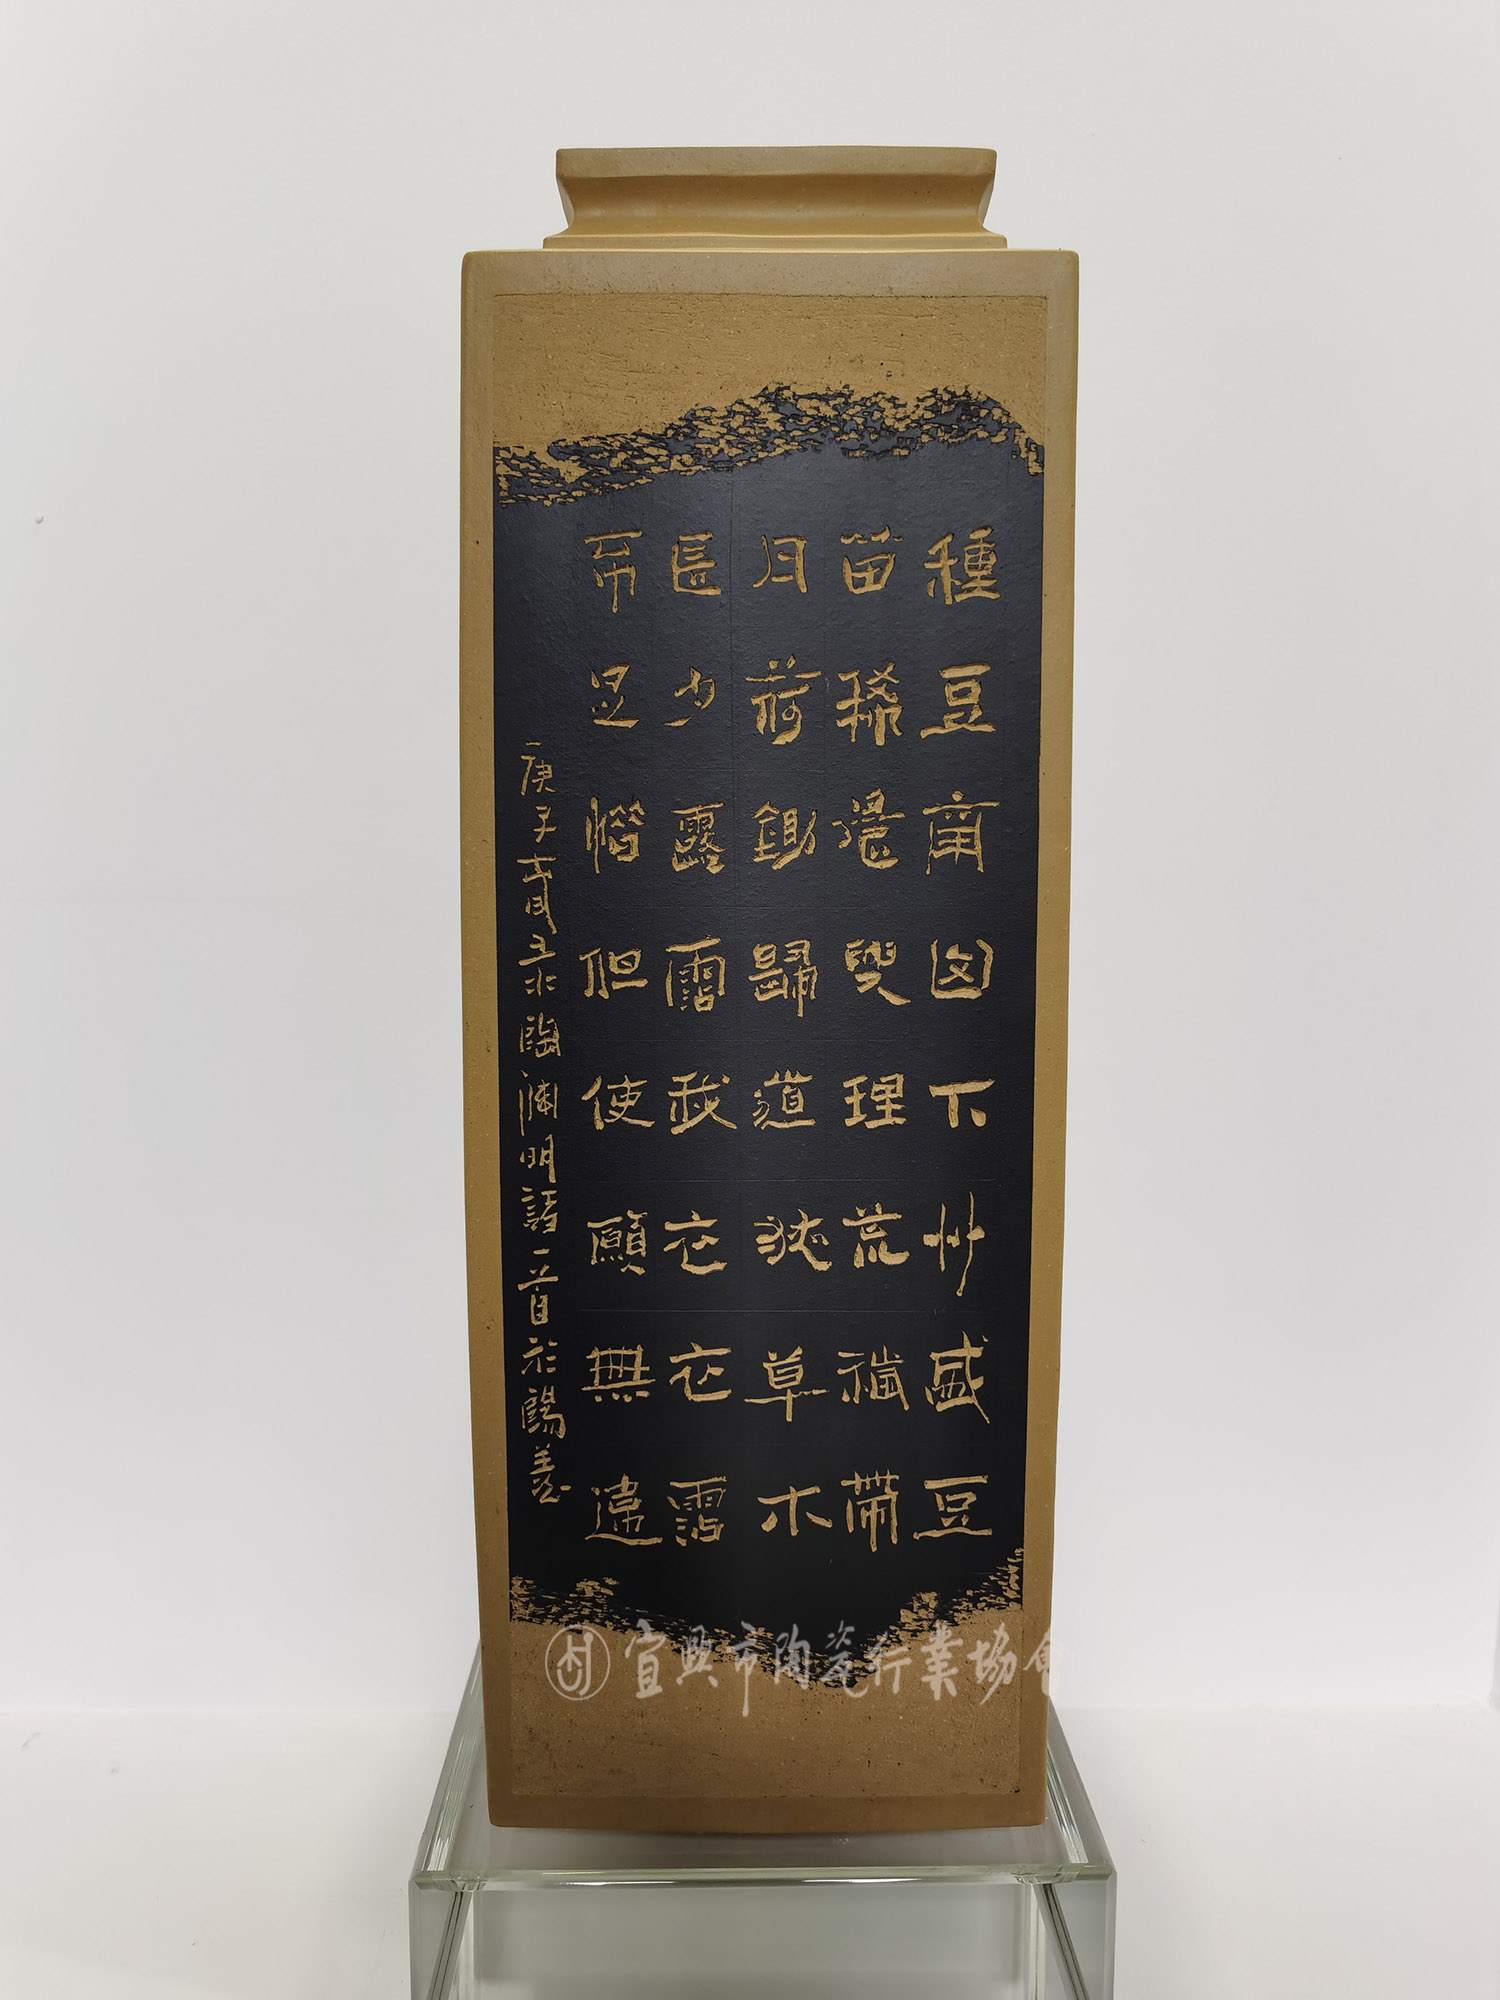 種豆南山下艸盛豆
苗稀晨興理荒穢帶
月荷鋤歸道狹草木
長夕露霑我衣衣霑
不足惜但使願無違
庚子春月录陶渊明詩一首於陽羨
宜興市陶瓷行業協會